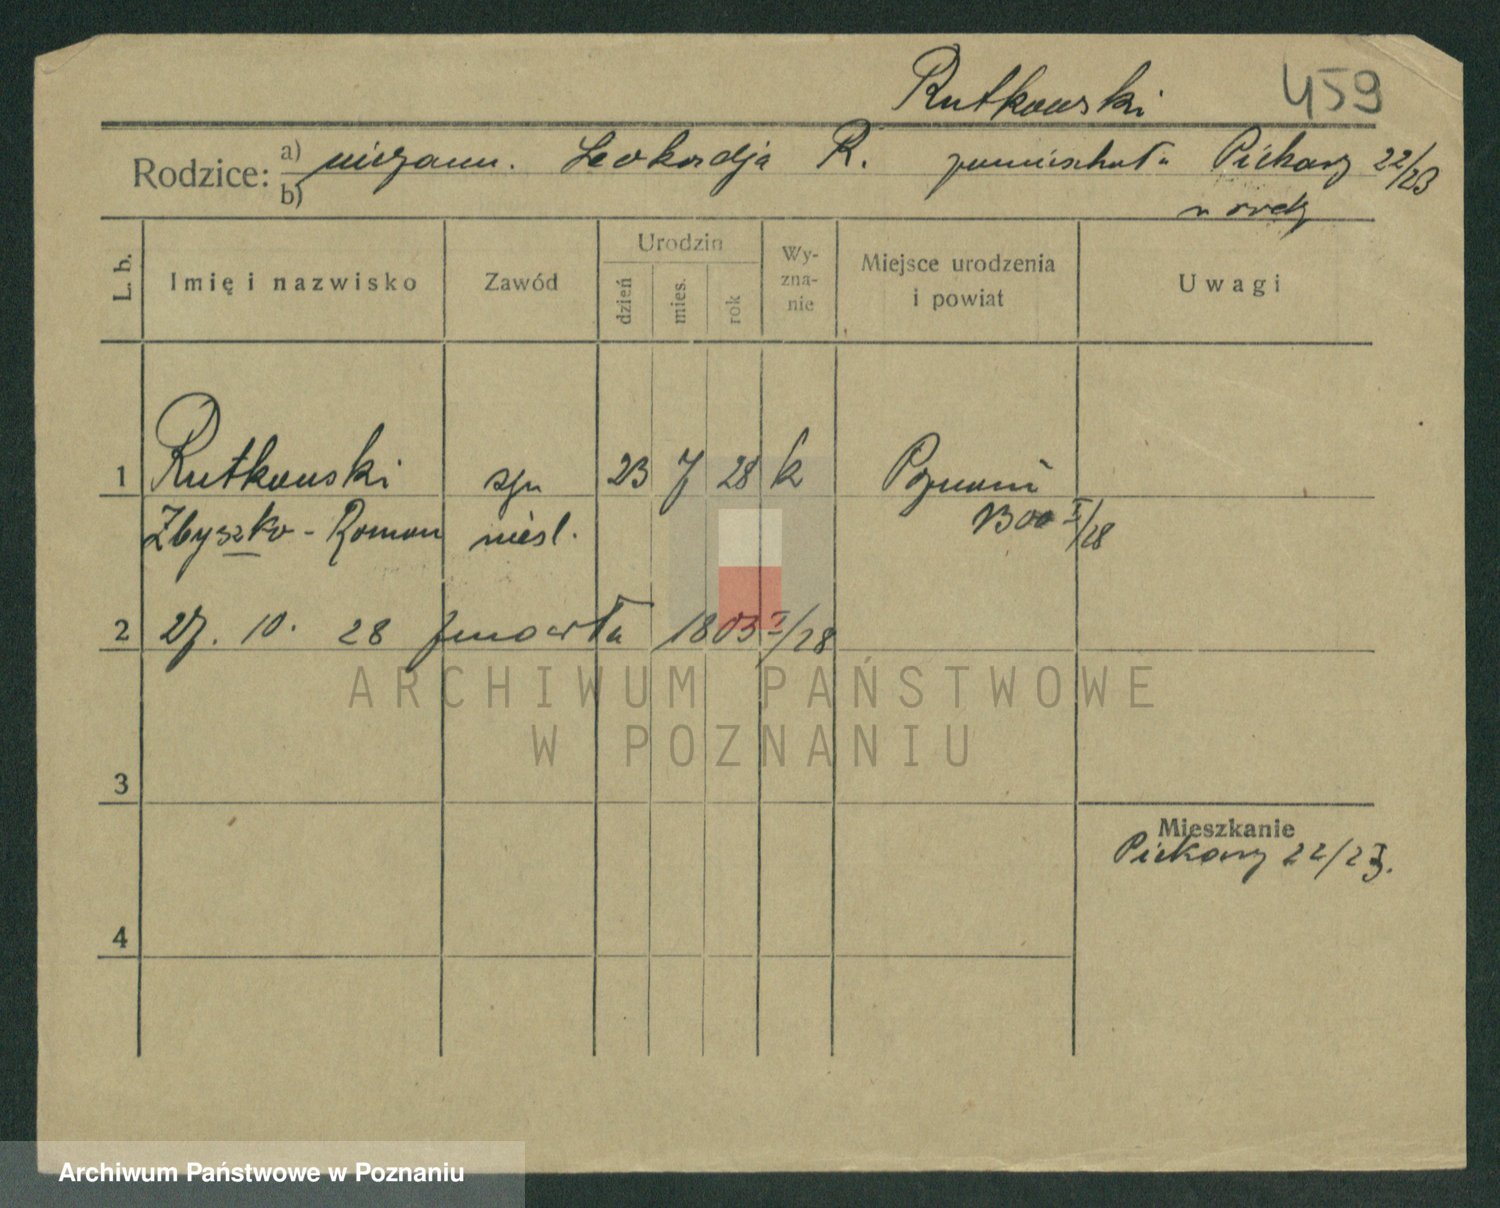 Rutkowski 459
Rodzice: a) niezam. Leokadja R. zamieszkała Piekary 22/23
b)
L. b. Imię i nazwisko Zawód Urodzin dzień mies. rok Wy-zna-nie Miejsce urodzenia i powiat Uwagi
1 Rutkowski syn 23 7 28 k Poznań
Zbyszko-Roman nieśl. 1300 I/28
2 27. 10. 28 zmarła 1803 I/28
ARCHIWUM PAŃSTWOWE
W POZNANIU
3
Mieszkanie
Piekary 22/23.
4
Archiwum Państwowe w Poznaniu